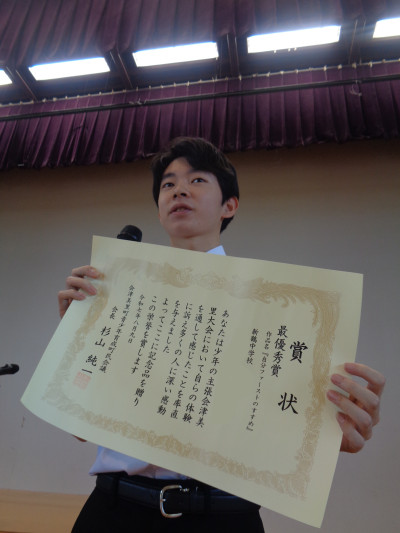 賞状
最優秀賞
作品名『自分ファーストのすすめ』
新鶴中学校
あなたは少年の主張会津美
里大会において自らの体験
を通して感じたことを率直
に訴え多くの人に深い感動
を与えました
よってここに記念品を贈り
この栄誉を賞します
令和七年八月九日
会津美里町青少年育成町民会議
会長 杉山純一